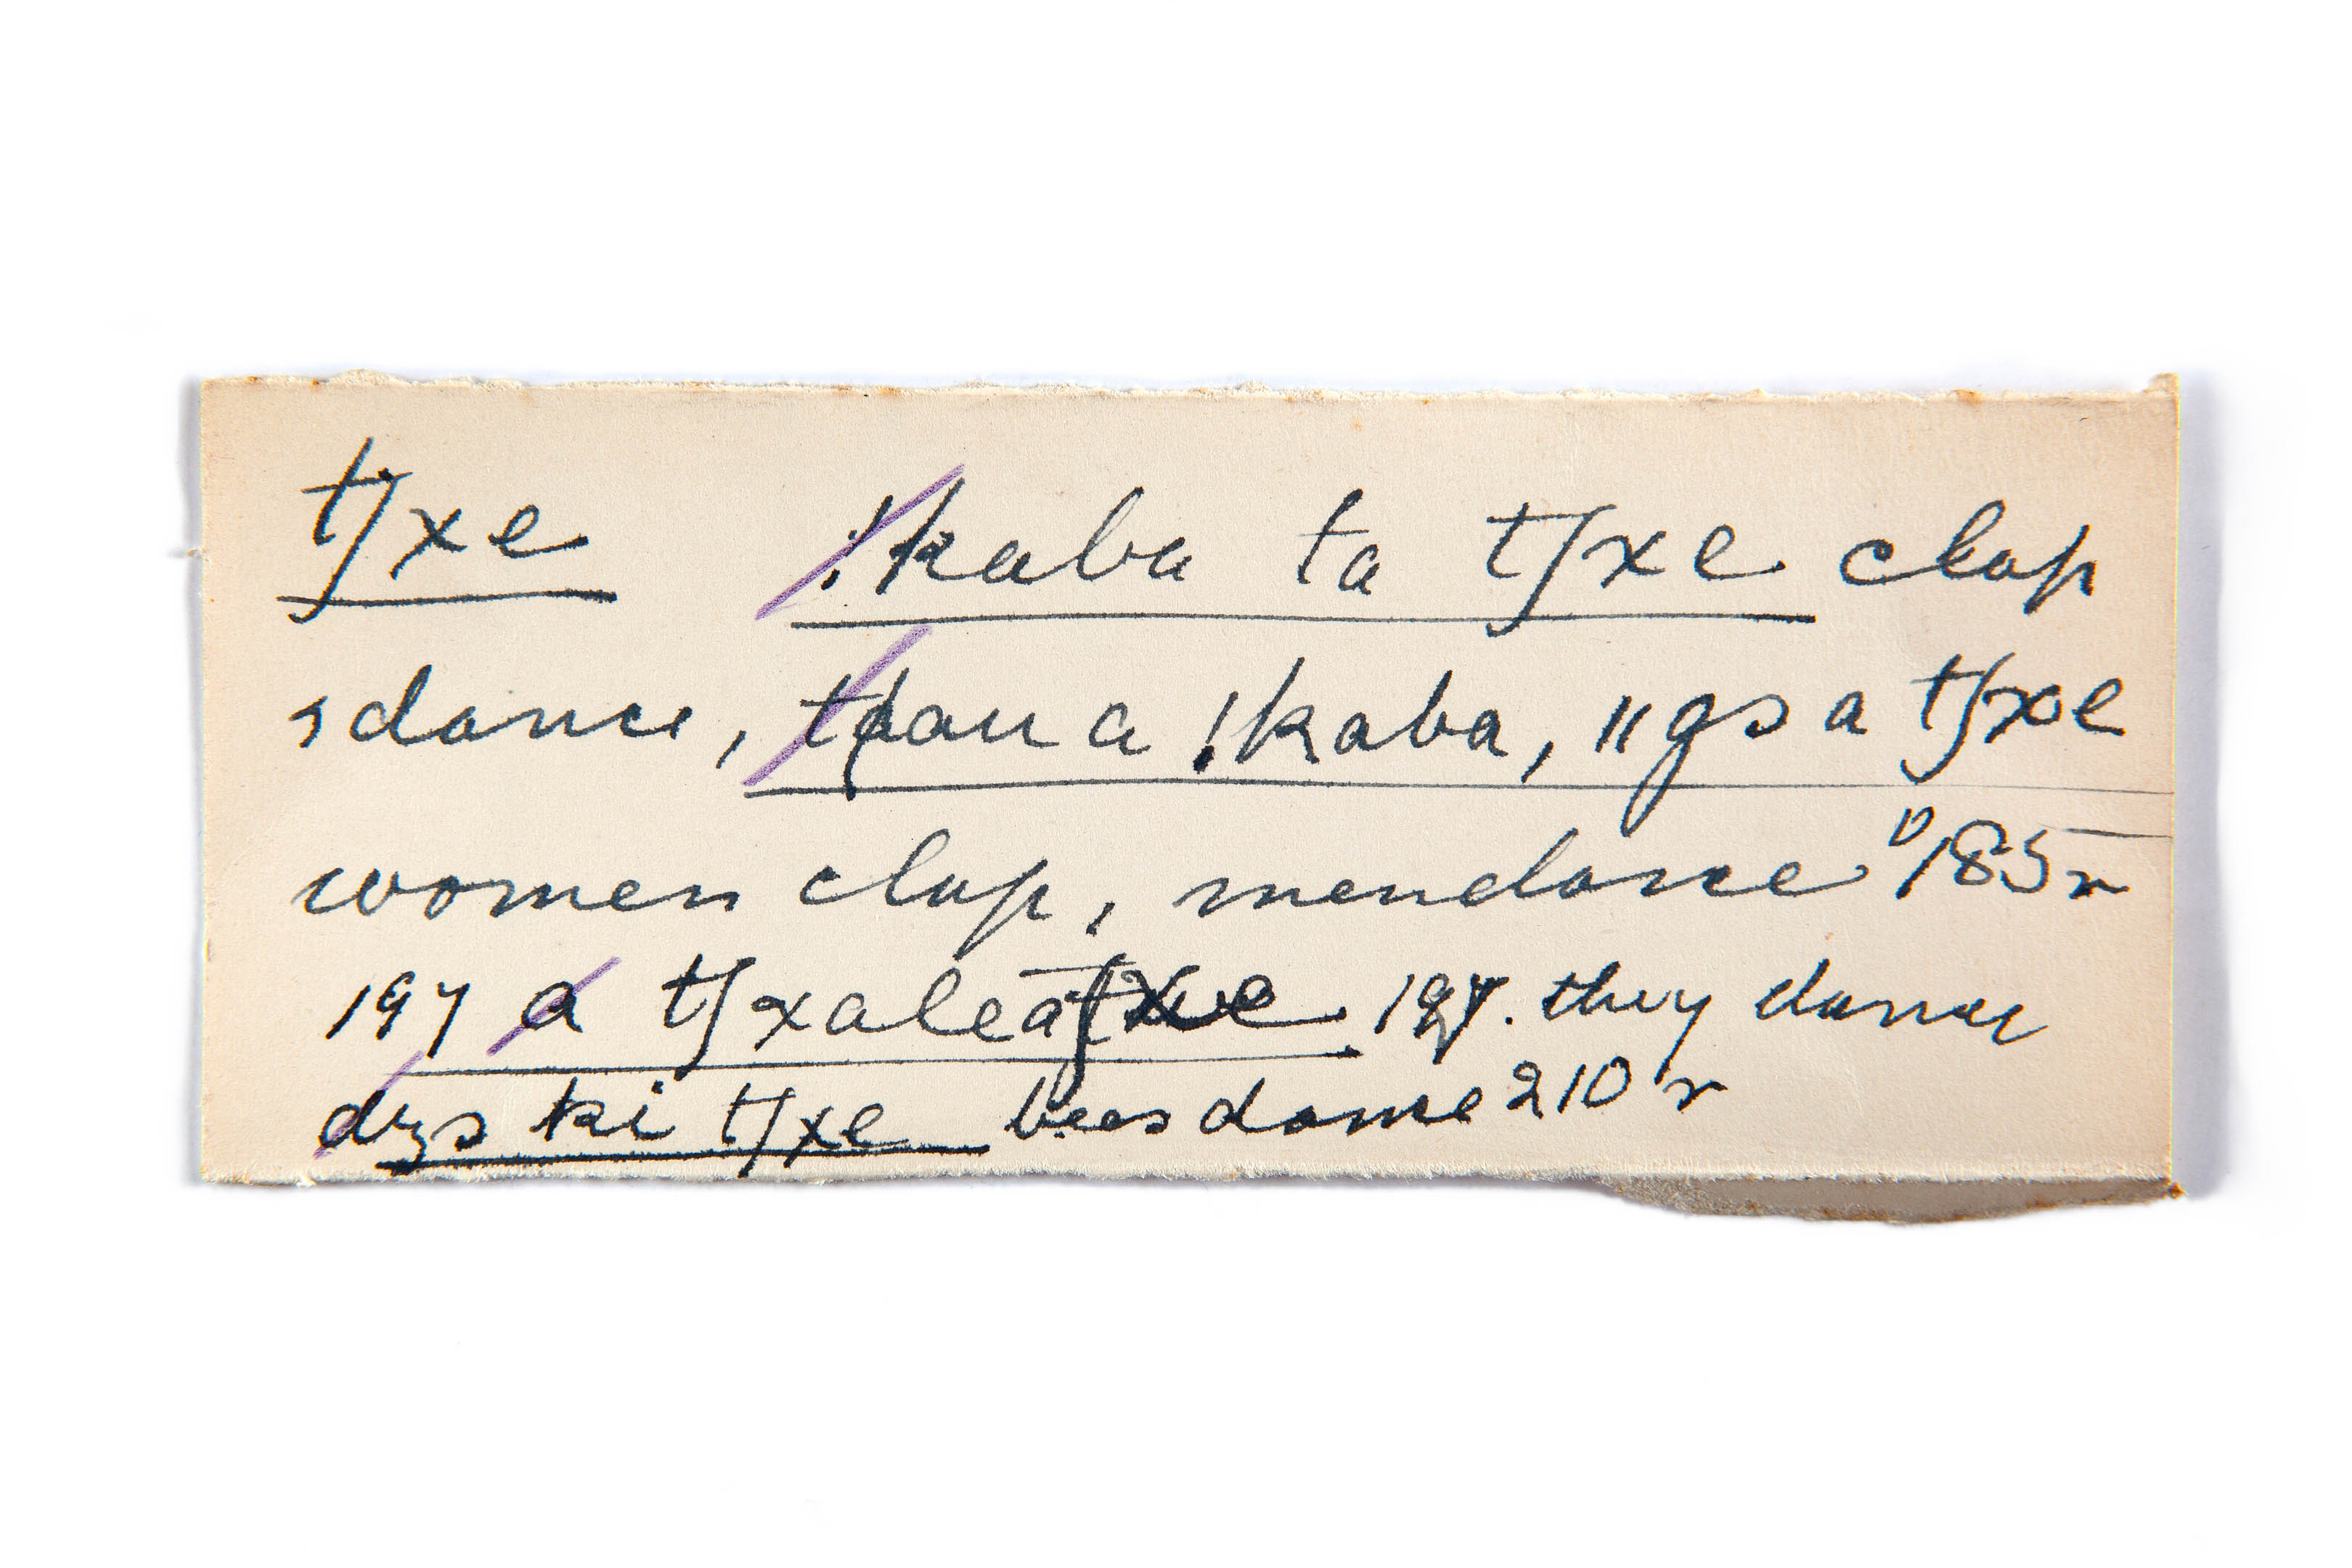 tʃxe !kaba ta tʃxe clap
s dance, a !kaba, ||gsa tʃxe
women clap, men dance D/185r
197 a tʃxalea tʃxe. 197. they dance
ki tʃxe bees dance 210 r